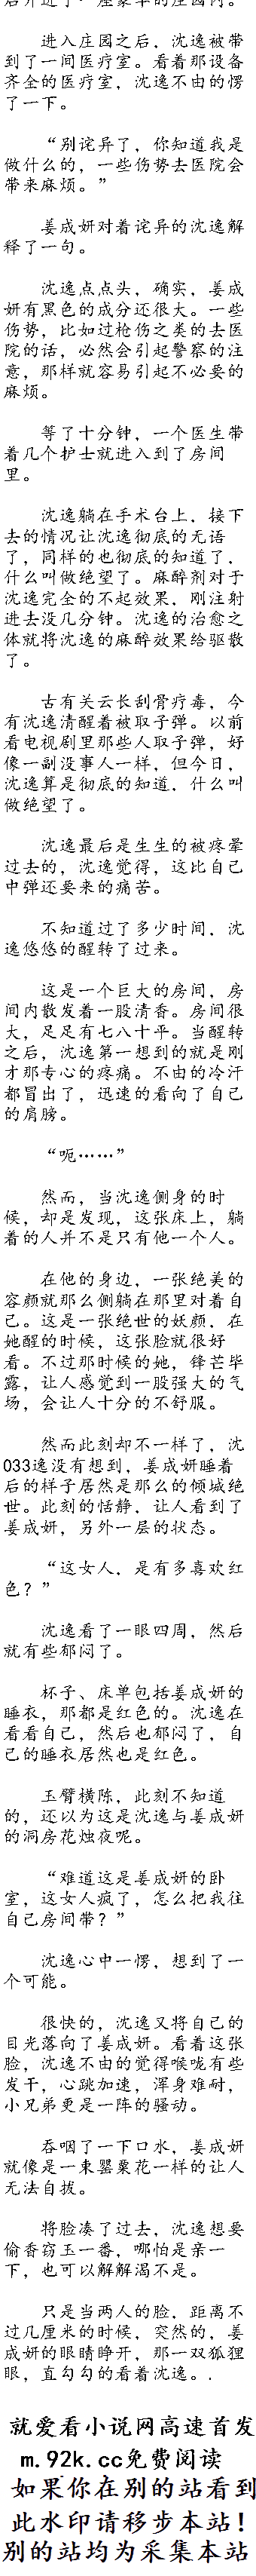 进入庄园之后，沈逸被带
到了一间医疗室。看着那设备
齐全的医疗室，沈逸不由的愣
了一下。
“别诧异了，你知道我是
做什么的，一些伤势去医院会
带来麻烦。”
姜成妍对着诧异的沈逸解
释了一句。
沈逸点点头，确实，姜成
妍有黑色的成分还很大。一些
伤势，比如过枪伤之类的去医
院的话，必然会引起警察的注
意，那样就容易引起不必要的
麻烦。
等了十分钟，一个医生带
着几个护士就进入到了房间
里。
沈逸躺在手术台上，接下
去的情况让沈逸彻底的无语
了，同样的也彻底的知道了，
什么叫做绝望了。麻醉剂对于
沈逸完全的不起效果，刚注射
进去没几分钟。沈逸的治愈之
体就将沈逸的麻醉效果给驱散
了。
古有关云长刮骨疗毒，今
有沈逸清醒着被取子弹。以前
看电视剧里那些人取子弹，好
像一副没事人一样，但今日，
沈逸算是彻底的知道，什么叫
做绝望了。
沈逸最后是生生的被疼晕
过去的，沈逸觉得，这比自己
中弹还要来的痛苦。
不知道过了多少时间，沈
逸悠悠的醒转了过来。
这是一个巨大的房间，房
间内散发着一股清香。房间很
大，足足有七八十平。当醒转
之后，沈逸第一想到的就是刚
才那专心的疼痛。不由的冷汗
都冒出了，迅速的看向了自己
的肩膀。
“呃……”
然而，当沈逸侧身的时
候，却是发现，这张床上，躺
着的人并不是只有他一个人。
在他的身边，一张绝美的
容颜就那么侧躺在那里对着自
己。这是一张绝世的妖颜，在
她醒的时候，这张脸就很好
看。不过那时候的她，锋芒毕
露，让人感觉到一股强大的气
场，会让人十分的不舒服。
然而此刻却不一样了，沈
033逸没有想到，姜成妍睡着
后的样子居然是那么的倾城绝
世。此刻的恬静，让人看到了
姜成妍，另外一层的状态。
“这女人，是有多喜欢红
色？”
沈逸看了一眼四周，然后
就有些郁闷了。
杯子、床单包括姜成妍的
睡衣，那都是红色的。沈逸在
看看自己，然后也郁闷了，自
己的睡衣居然也是红色。
玉臂横陈，此刻不知道
的，还以为这是沈逸与姜成妍
的洞房花烛夜呢。
“难道这是姜成妍的卧
室，这女人疯了，怎么把我往
自己房间带？”
沈逸心中一愣，想到了一
个可能。
很快的，沈逸又将自己的
目光落向了姜成妍。看着这张
脸，沈逸不由的觉得喉咙有些
发干，心跳加速，浑身难耐，
小兄弟更是一阵的骚动。
吞咽了一下口水，姜成妍
就像是一束罂粟花一样的让人
无法自拔。
将脸凑了过去，沈逸想要
偷香窃玉一番，哪怕是亲一
下，也可以解解渴不是。
只是当两人的脸，距离不
过几厘米的时候，突然的，姜
成妍的眼睛睁开，那一双狐狸
眼，直勾勾的看着沈逸。.
就爱看小说网高速首发
m.92k.cc免费阅读
如果你在别的站看到
此水印请移步本站！
别的站均为采集本站